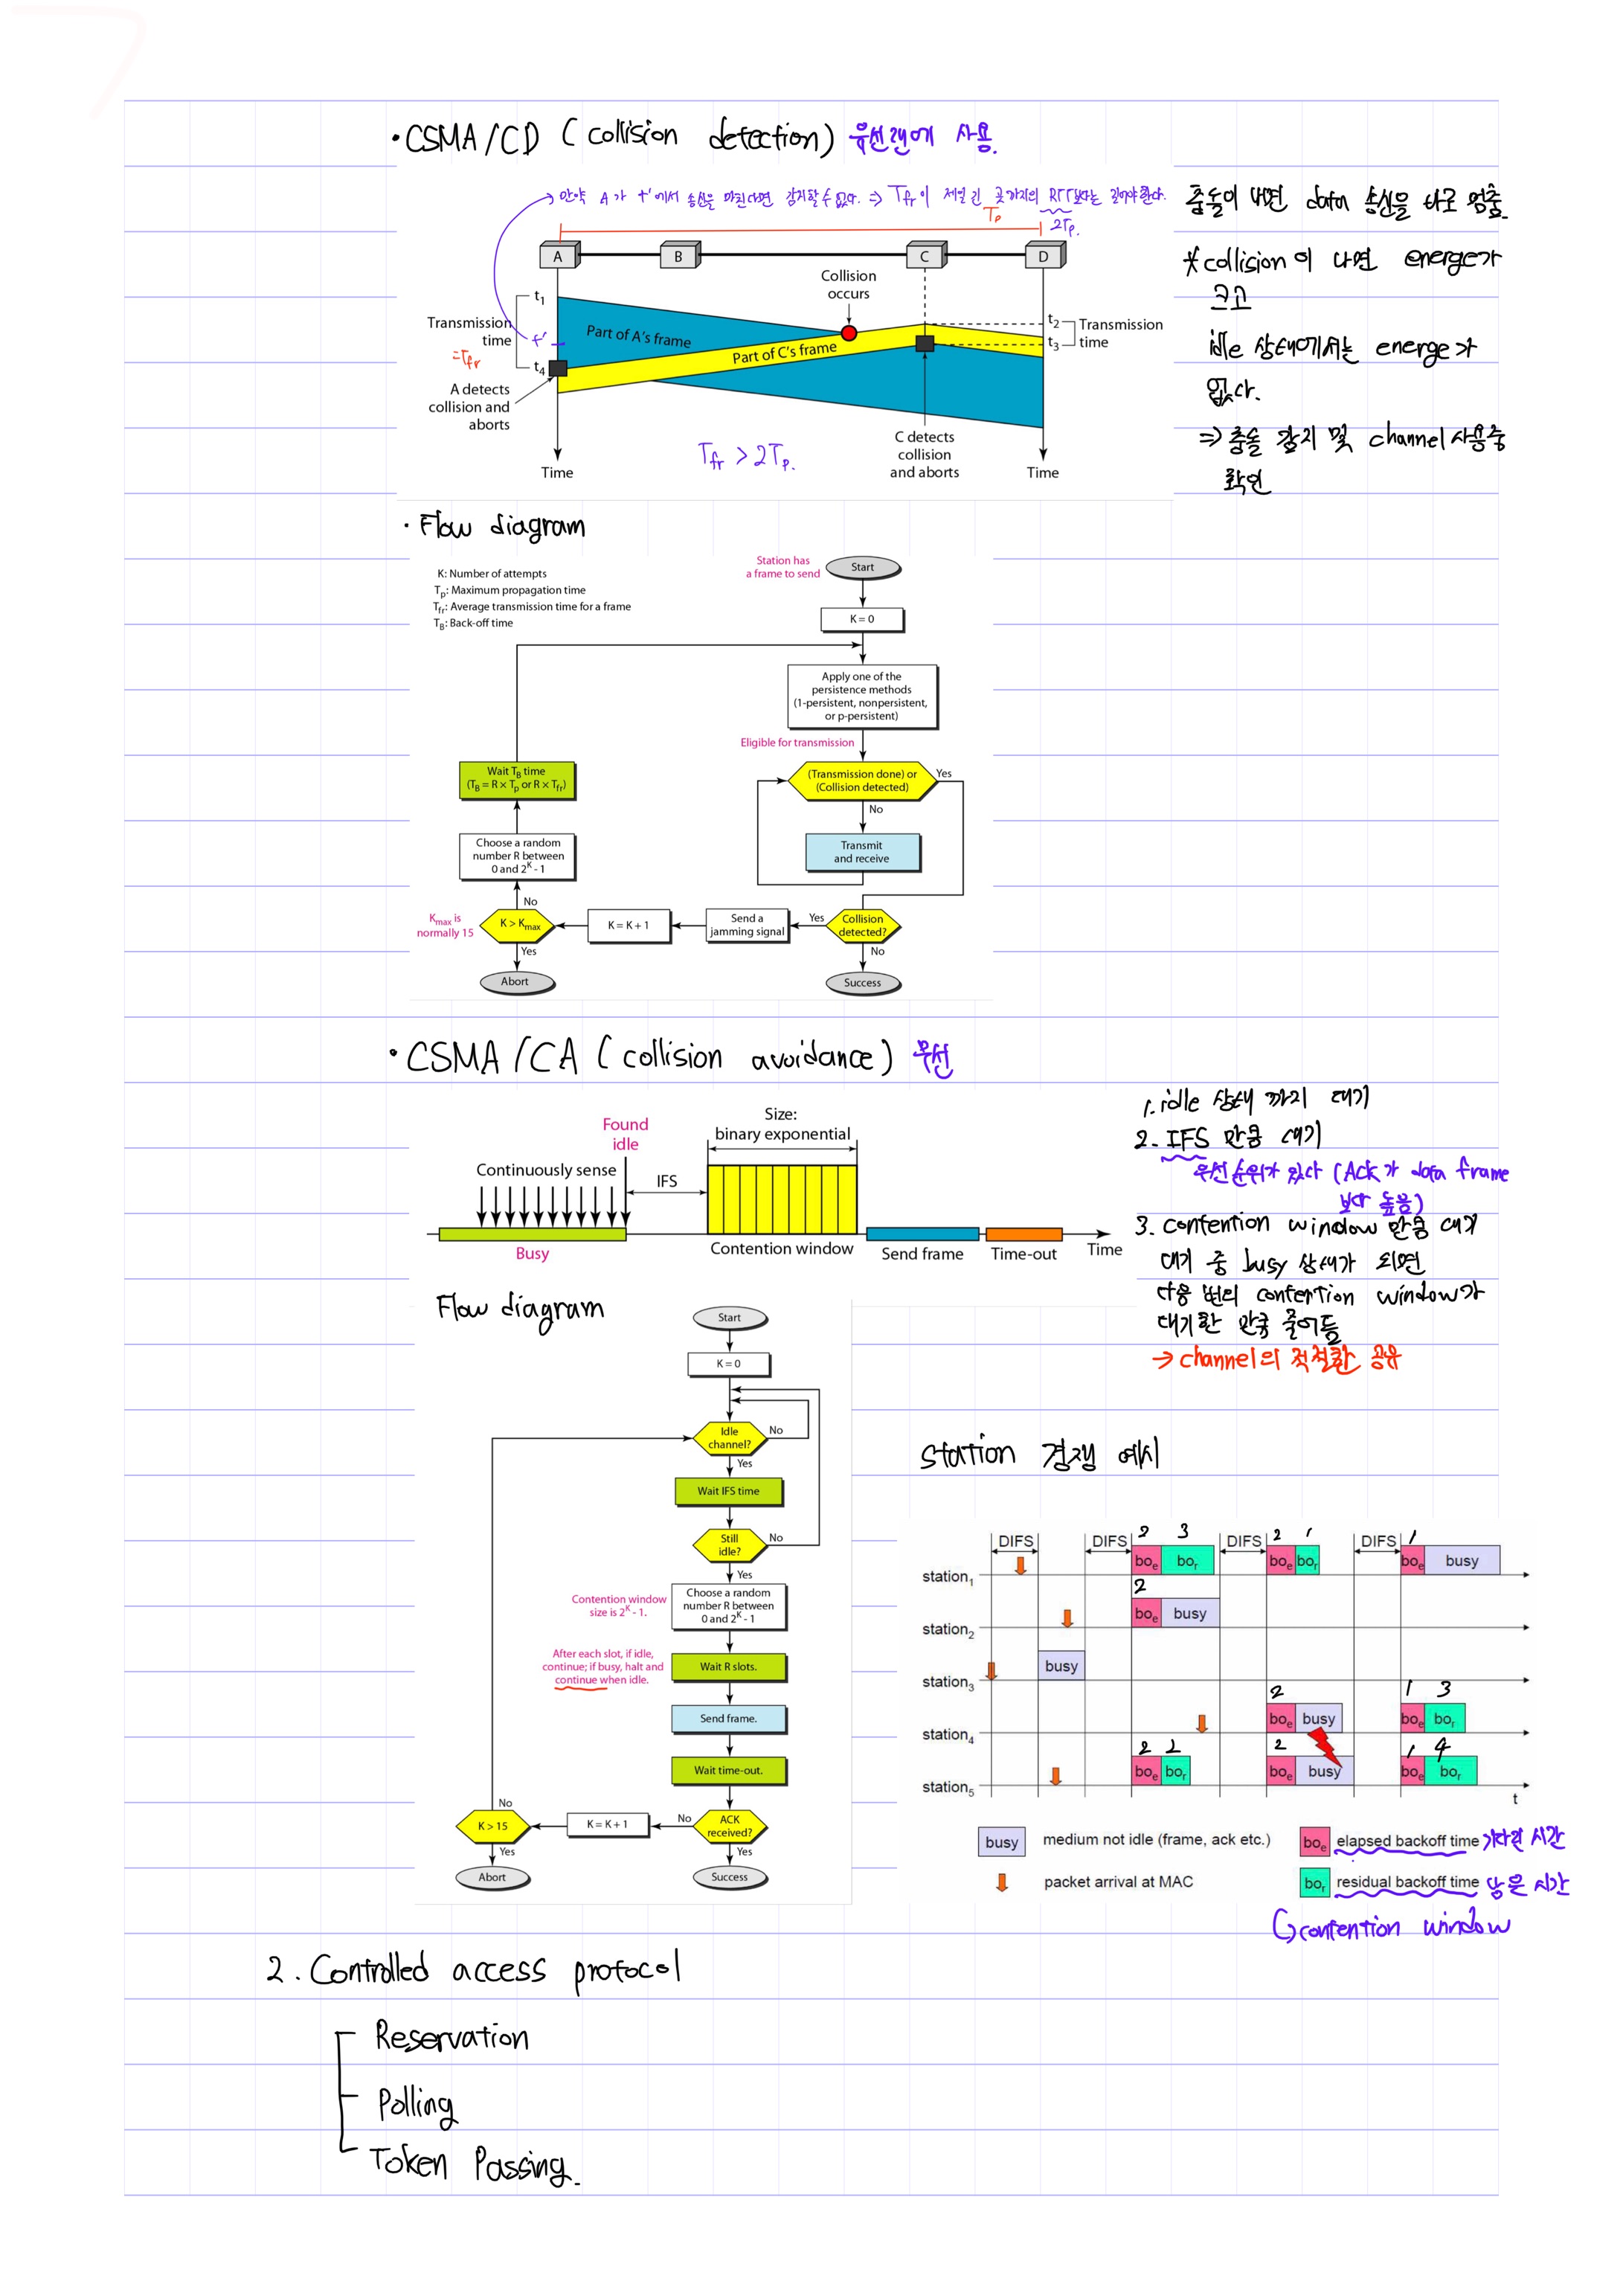 · CSMA/CD ( collision detection) 유선랜에 사용.
→ 만약 A가 t'에서 송신을 마친다면 감지할 수 없다. ⇒ Tfr이 제일 긴 곳까지의 RTT보다는 길어야 한다.
2Tp.
Tp
충돌이 나면 data 송신을 바로 멈춤.
* collision이 나면 energe가
크고
idle 상태에서는 energe가
없다.
⇒ 충돌 감지 및 channel 사용중
확인
A
B
C
D
Collision
occurs
t1
Transmission
time
=Tfr
t'
t4
Part of A's frame
Part of C's frame
t2
t3
Transmission
time
A detects
collision and
aborts
Tfr > 2Tp.
C detects
collision
and aborts
Time
Time
· Flow diagram
K: Number of attempts
Tp: Maximum propagation time
Tfr: Average transmission time for a frame
TB: Back-off time
Station has
a frame to send
Start
K = 0
Apply one of the
persistence methods
(1-persistent, nonpersistent,
or p-persistent)
Eligible for transmission
(Transmission done) or
(Collision detected)
Yes
No
Transmit
and receive
Wait TB time
(TB = R × Tp or R × Tfr)
Choose a random
number R between
0 and 2^K - 1
No
Kmax is
normally 15
K > Kmax
K = K + 1
Send a
jamming signal
Yes
Collision
detected?
Yes
No
Abort
Success
· CSMA/CA ( collision avoidance) 무선
Found
idle
Size:
binary exponential
Continuously sense
IFS
Busy
Contention window
Send frame
Time-out
Time
1. idle 상태 까지 대기
2. IFS 만큼 대기
우선순위가 있다 (Ack가 data frame
보다 높음)
3. contention window 만큼 대기
대기 중 busy 상태가 되면
다음 번의 contention window가
대기한 만큼 줄어듬
→ channel의 적절한 공유
Flow diagram
Start
K = 0
Idle
channel?
No
Yes
Wait IFS time
Still
idle?
No
Yes
Contention window
size is 2^K - 1.
Choose a random
number R between
0 and 2^K - 1
After each slot, if idle,
continue; if busy, halt and
continue when idle.
Wait R slots.
Send frame.
Wait time-out.
No
K > 15
K = K + 1
No
ACK
received?
Yes
Yes
Abort
Success
station 경쟁 예시
2 3 2 1 1
DIFS DIFS DIFS DIFS
station1 boe bor boe bor boe busy
2
station2 boe busy
station3 busy
2 1 3
station4 boe busy boe bor
2 2 2 1 4
station5 boe bor boe busy boe bor
t
busy medium not idle (frame, ack etc.)
boe elapsed backoff time 기다린 시간
packet arrival at MAC
bor residual backoff time 남은 시간
↳ contention window
2. Controlled access protocol
Reservation
Polling
Token Passing.